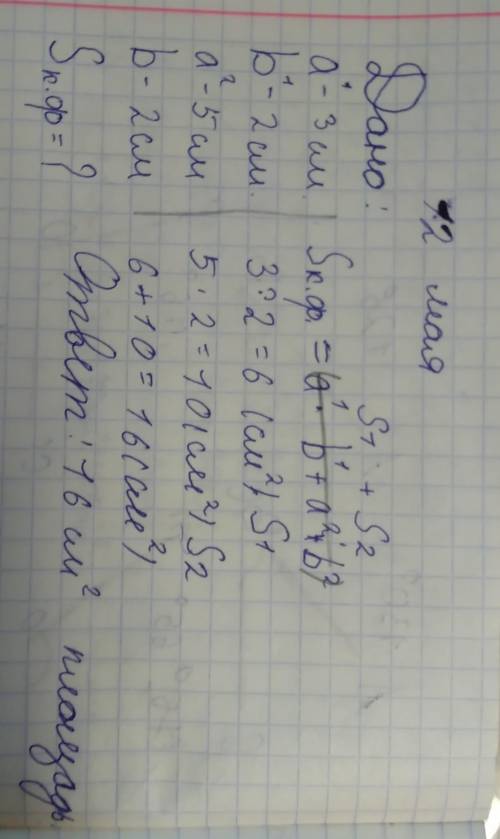 12 мая
Дано:
a¹ - 3 см.
b¹ - 2 см.
a² - 5 см
b - 2 см
Sк.ф = ?
S1 + S2
Sк.ф. = a¹ · b¹ + a² · b²
3 · 2 = 6 (см²) S1
5 · 2 = 10 (см²) S2
6 + 10 = 16 (см²)
Ответ: 16 см² площадь